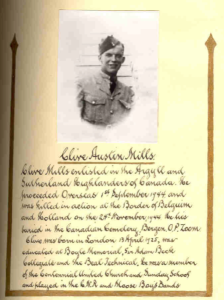 Clive Austin Mills.
Clive Mills enlisted in the Argyll and
Sutherland Highlanders of Canada. He
proceeded Overseas 1st September 1944 and
was killed in action at the Border of Belgium
and Holland on the 2nd November 1944. He lies
buried in the Canadian Cemetery, Bergen OP. Zoom.
Clive was born in London 13 April 1925, was
educated at Boyle Memorial, Sir Adam Beck
Collegiate and the Beal Technical, he was a member
of the Centennial United Church and Sunday School
and played in the C.N.R and Moose Boys Bands